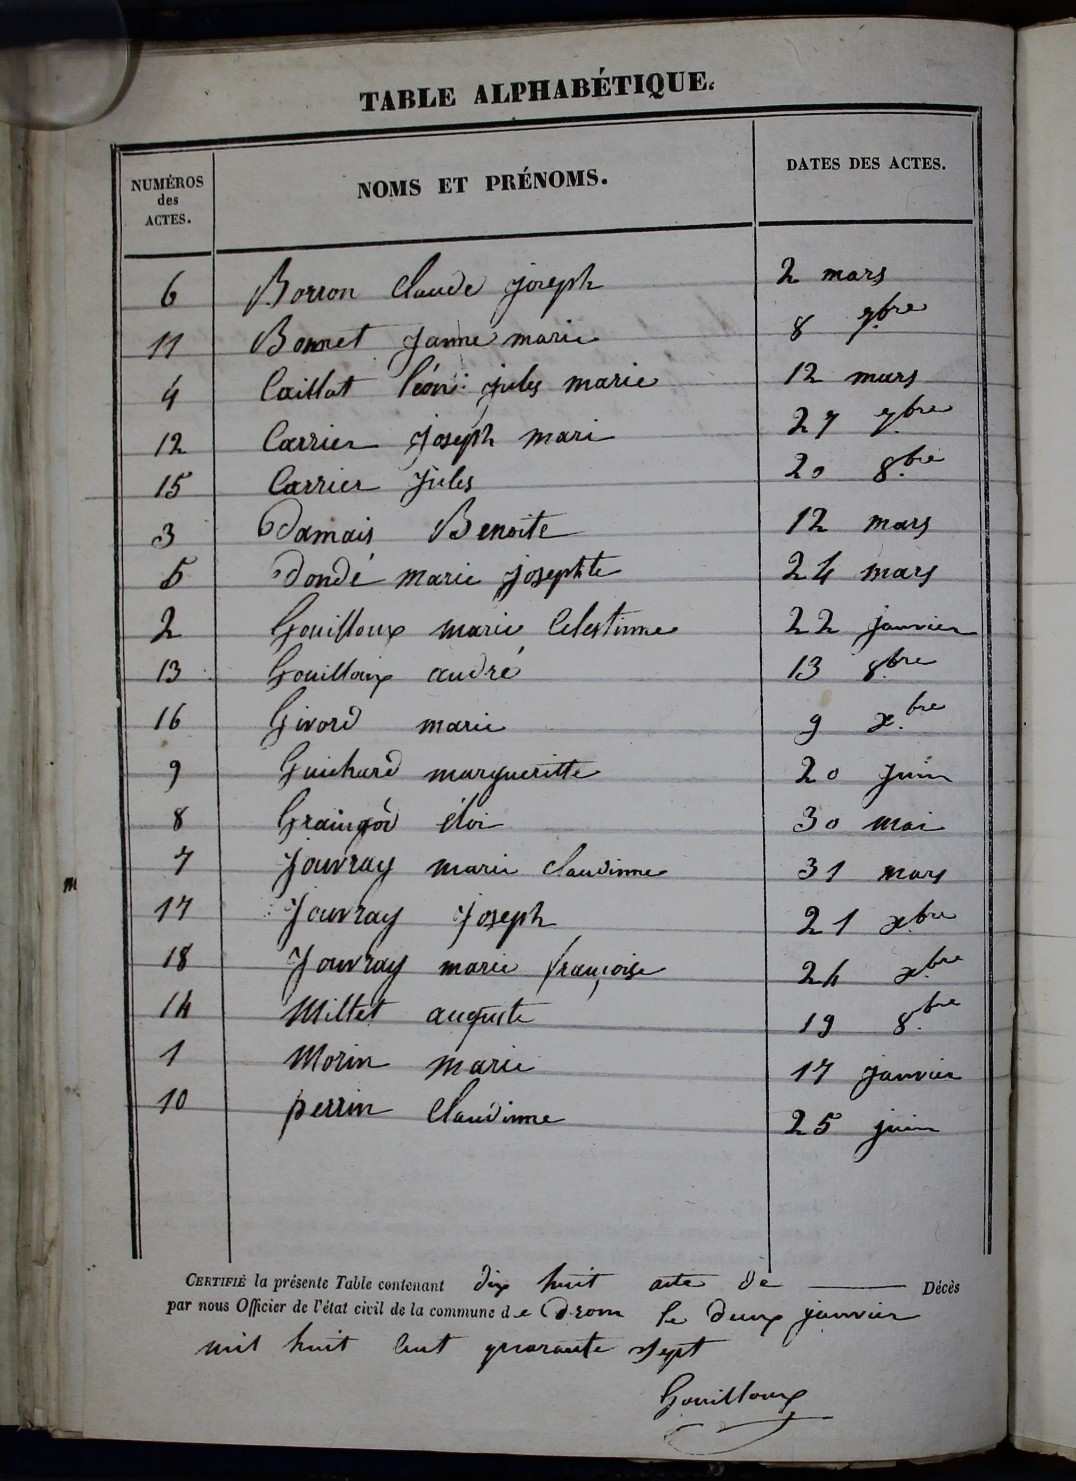 TABLE ALPHABÉTIQUE.
NUMÉROS des ACTES. NOMS ET PRÉNOMS. DATES DES ACTES.
6 Borron Claude joseph 2 mars
11 Bonnet Janne marie 8 7bre
4 Caillat léon jules marie 12 mars
12 Carrier joseph mari 27 7bre
15 Carrier Jules 20 8bre
3 Damais Benoite 12 mars
5 Dondé marie josephte 24 mars
2 Gouilloux marie Celestinne 22 janvier
13 Gouilloux andré 13 8bre
16 Givord marie 9 xbre
9 Guichard margueritte 20 juin
8 Graingör éloi 30 mai
7 Jouvray marie claudinne 31 mars
17 Jouvray Joseph 21 xbre
18 Jouvray marie françoise 24 xbre
14 Millet auguste 19 8bre
1 Morin marie 17 janvier
10 perrin Claudinne 25 juin
CERTIFIÉ la présente Table contenant dix huit acte de Décès
par nous Officier de l'état civil de la commune de Drom le deux janvier
mil huit cent quarante sept
Gouilloux